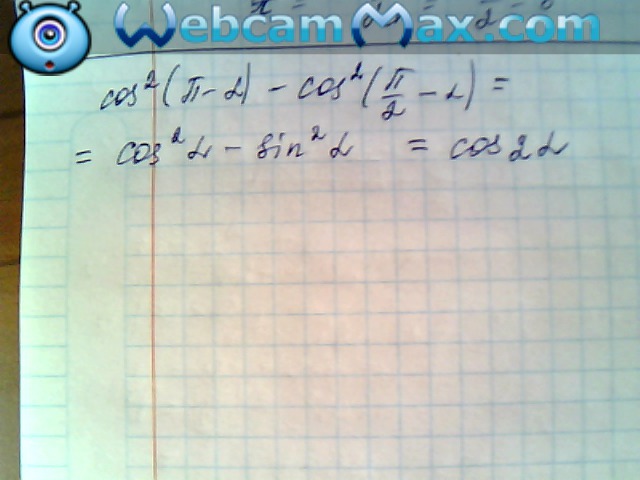 WebcamMax.com
cos²(π-α) - cos²(π/2 - α) =
= cos²α - sin²α = cos2α